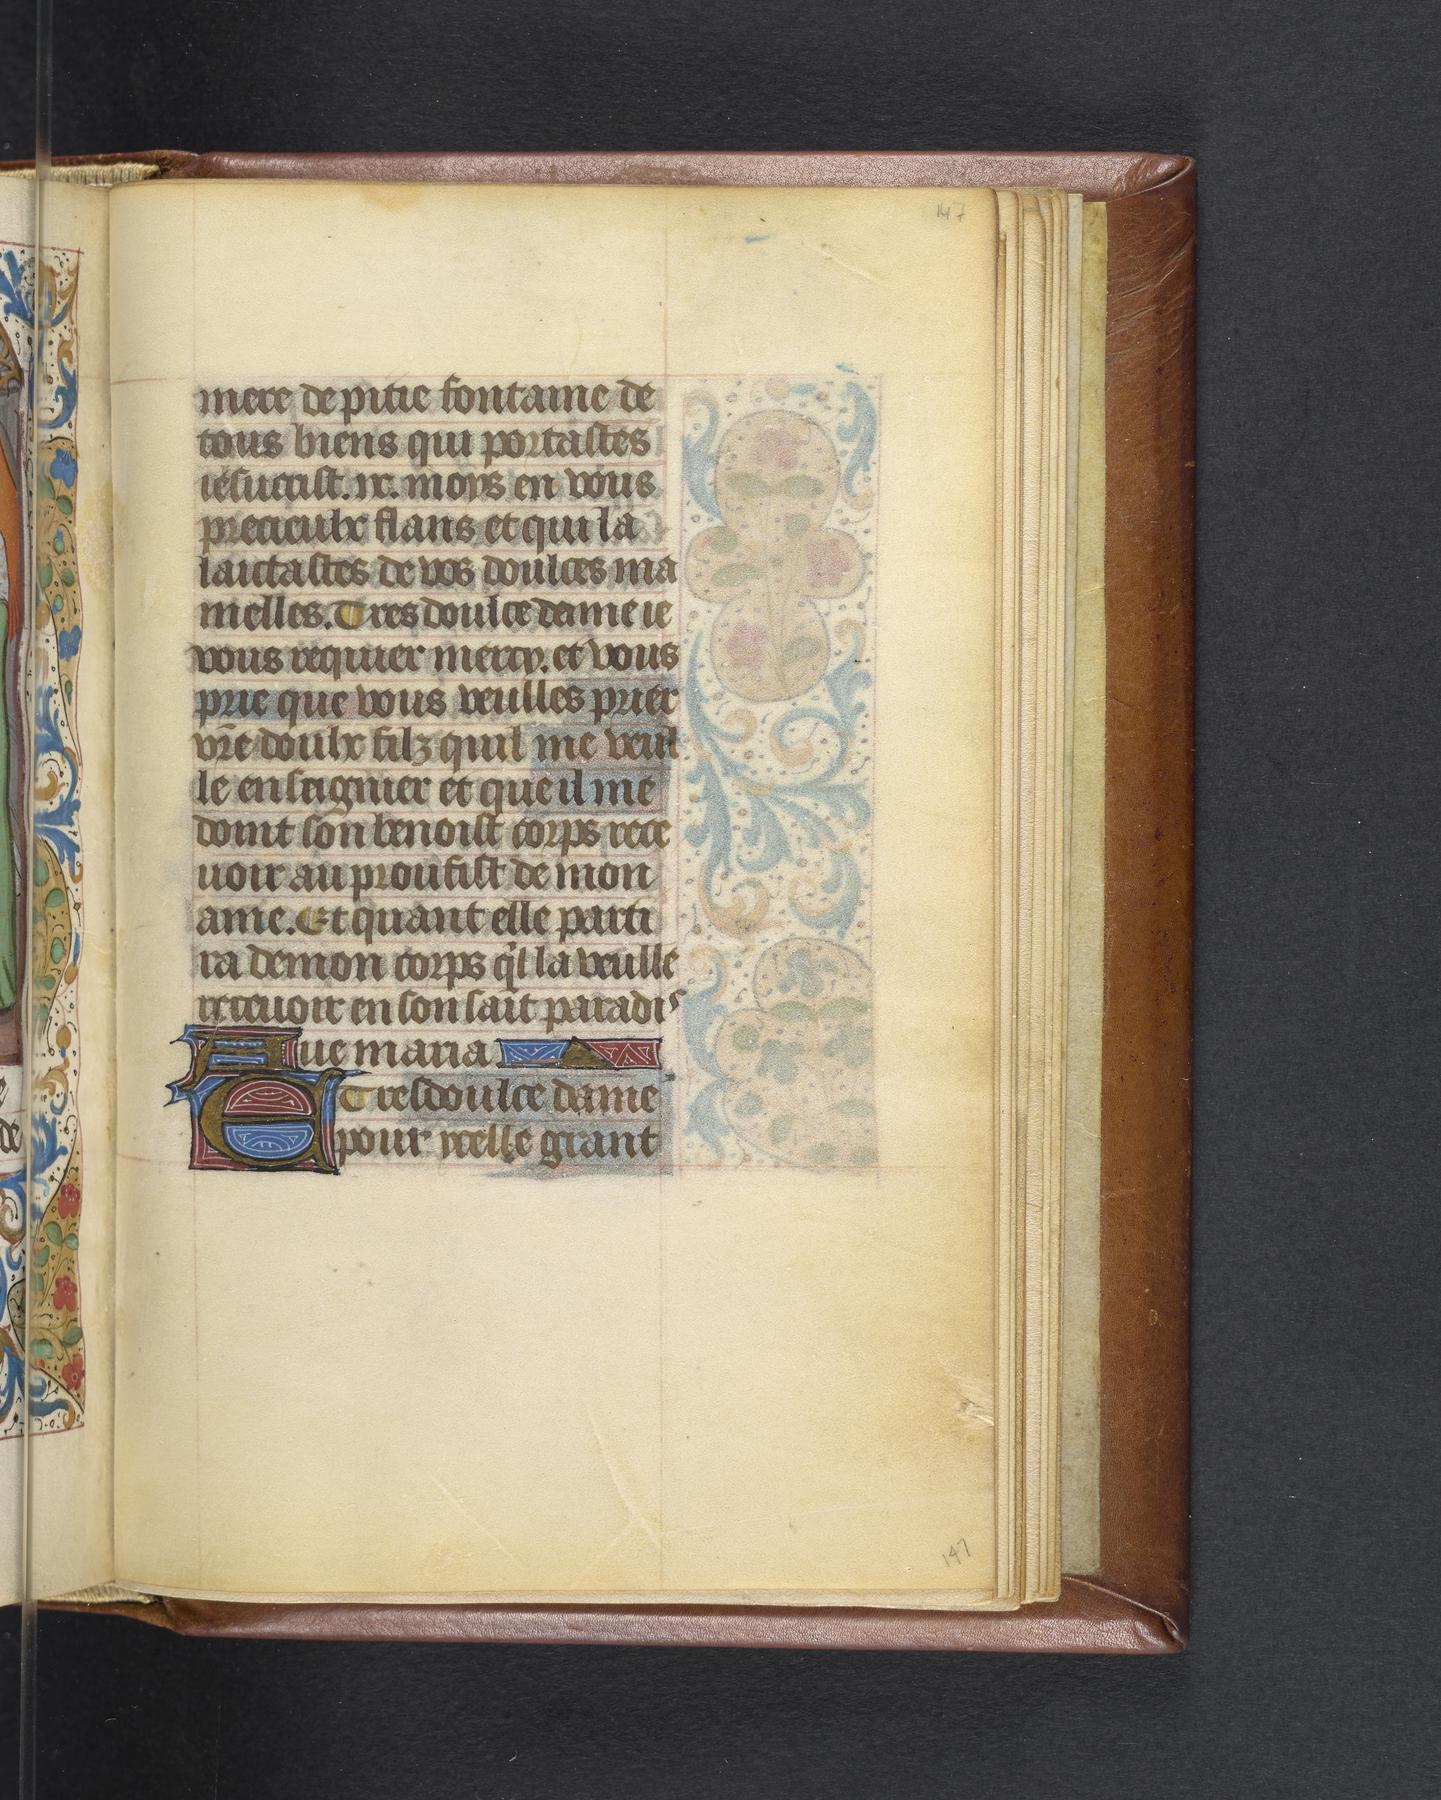 147
mere de pitie fontaine de
tous biens qui portastes
iesucrist. ix. moys en vous
precieulx flans et qui la
laictastes de vos doulces ma
melles. Tres doulce dame ie
vous requier mercy. et vous
prie que vous veulles prier
vr̄e doulx filz quil me veul
le enseignier et que il me
doint son benoist corps rece
uoir au proufist de mon
ame. Et quant elle parti
ra de mon corps q̇l la veulle
receuoir en son sait paradis
Aue maria
E Tresdoulce dame
pour icelle grant
147